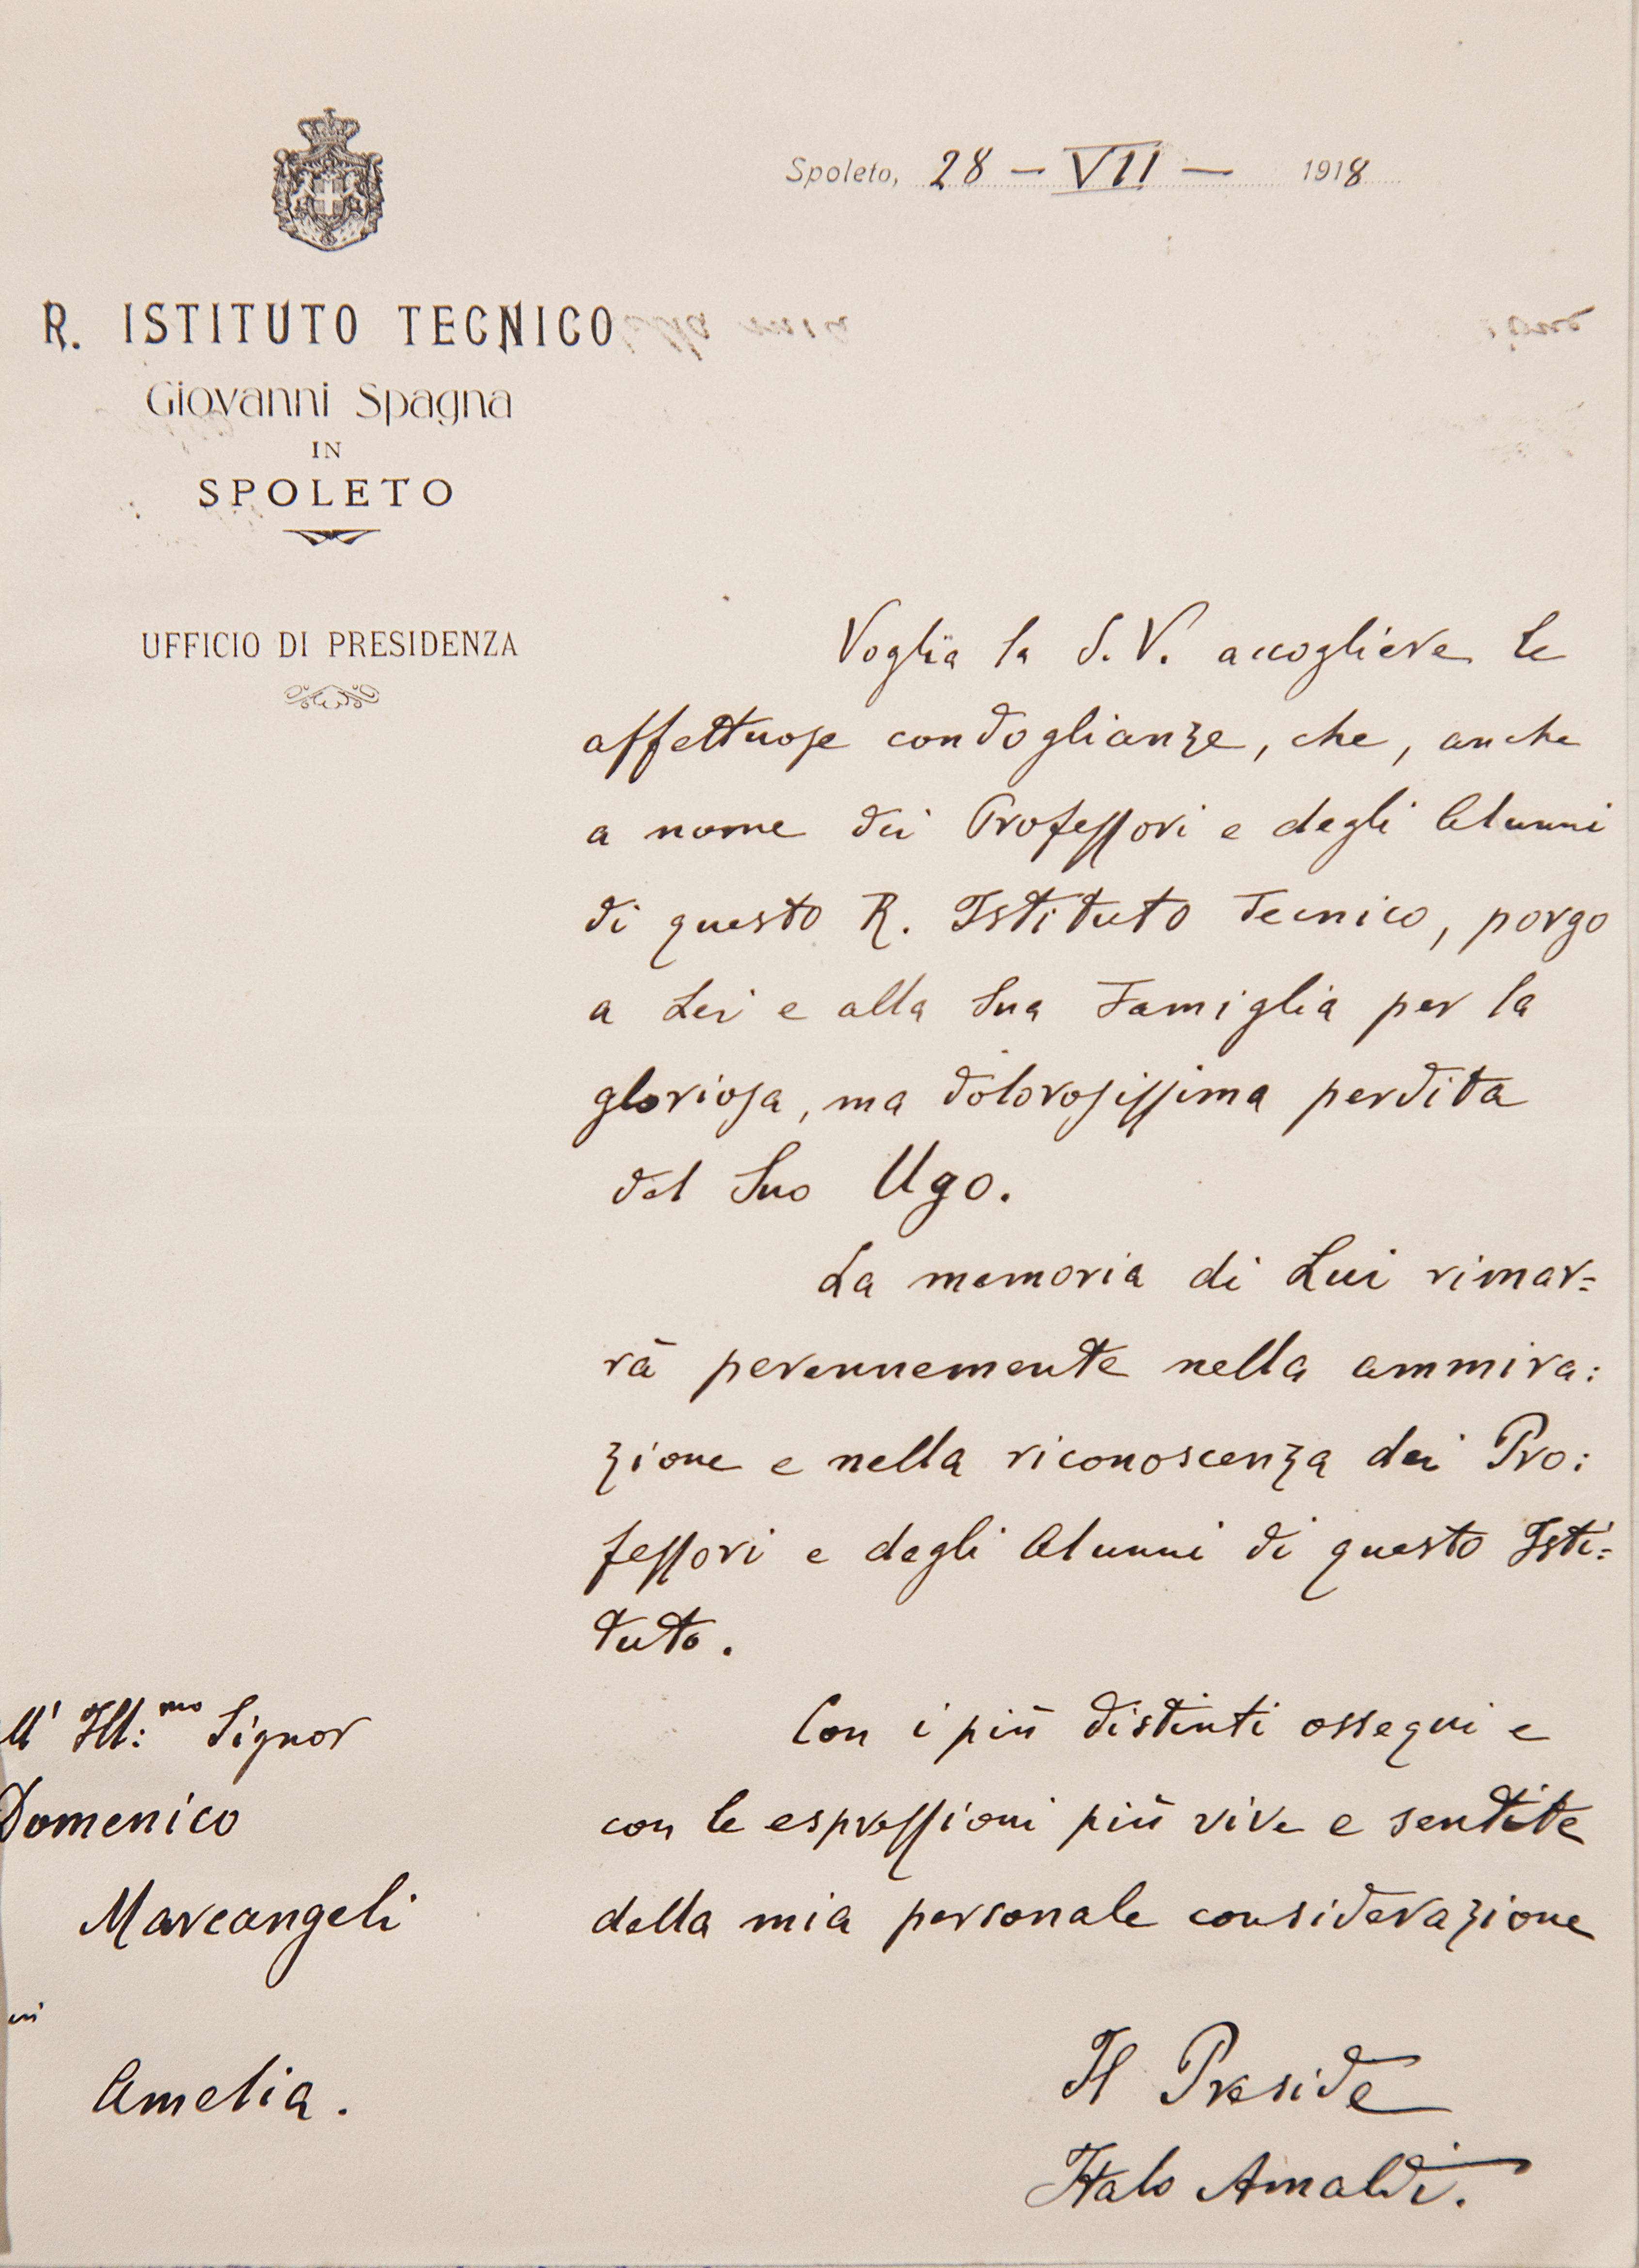 Spoleto, 28 - VII - 1918
R. ISTITUTO TECNICO
Giovanni Spagna
IN
SPOLETO
UFFICIO DI PRESIDENZA
Voglia la S. V. accogliere le
affettuose condoglianze, che, anche
a nome dei Professori e degli Alunni
di questo R. Istituto Tecnico, porgo
a Lei e alla Sua Famiglia per la
gloriosa, ma dolorosissima perdita
del Suo Ugo.
La memoria di Lui rimar=
rà perennemente nella ammira:
zione e nella riconoscenza dei Pro:
fessori e degli Alunni di questo Isti=
tuto.
Con i più distinti ossequi e
con le espressioni più vive e sentite
della mia personale considerazione
Il Preside
Italo Amaldi.
ll' Ill:mo Signor
Domenico
Marcangeli
in
Amelia.